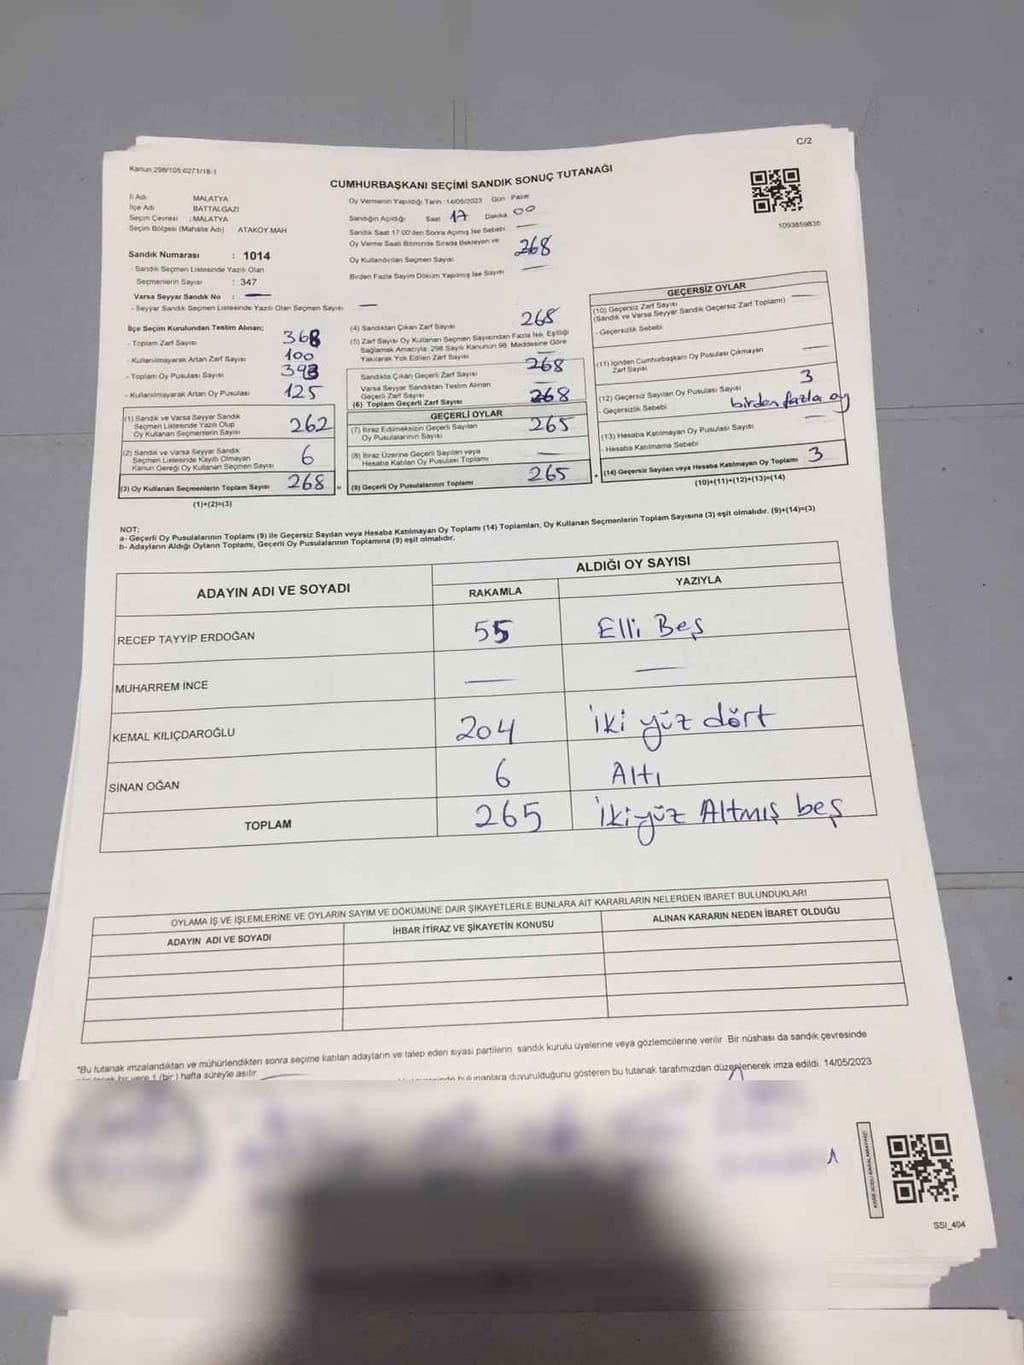 C/2
Kanun 298/105 6271/18-1
CUMHURBAŞKANI SEÇİMİ SANDIK SONUÇ TUTANAĞI
1093859835
İl Adı MALATYA
İlçe Adı BATTALGAZİ
Seçim Çevresi : MALATYA
Seçim Bölgesi (Mahalle Adı) ATAKÖY MAH
Sandık Numarası : 1014
- Sandık Seçmen Listesinde Yazılı Olan
Seçmenlerin Sayısı : 347
Varsa Seyyar Sandık No : —
- Seyyar Sandık Seçmen Listesinde Yazılı Olan Seçmen Sayısı —
Oy Vermenin Yapıldığı Tarih :14/05/2023 Gün Pazar
Sandığın Açıldığı Saat 17 Dakika 00
Sandık Saat 17:00'den Sonra Açılmış İse Sebebi —
Oy Verme Saati Bitiminde Sırada Bekleyen ve
Oy Kullandırılan Seçmen Sayısı 268
Birden Fazla Sayım Döküm Yapılmış İse Sayısı —
İlçe Seçim Kurulundan Teslim Alınan;
- Toplam Zarf Sayısı 368
- Kullanılmayarak Artan Zarf Sayısı 100
- Toplam Oy Pusulası Sayısı 393
- Kullanılmayarak Artan Oy Pusulası 125
(1) Sandık ve Varsa Seyyar Sandık
Seçmen Listesinde Yazılı Olup
Oy Kullanan Seçmenlerin Sayısı 262
(2) Sandık ve Varsa Seyyar Sandık
Seçmen Listesinde Kayıtlı Olmayan
Kanun Gereği Oy Kullanan Seçmen Sayısı 6
(3) Oy Kullanan Seçmenlerin Toplam Sayısı 268 =
(1)+(2)=(3)
(4) Sandıktan Çıkan Zarf Sayısı 268
(5) Zarf Sayısı Oy Kullanan Seçmen Sayısından Fazla İse, Eşitliği
Sağlamak Amacıyla, 298 Sayılı Kanunun 98. Maddesine Göre
Yakılarak Yok Edilen Zarf Sayısı —
Sandıkta Çıkan Geçerli Zarf Sayısı 268
Varsa Seyyar Sandıktan Teslim Alınan
Geçerli Zarf Sayısı —
(6) Toplam Geçerli Zarf Sayısı 268
GEÇERLİ OYLAR
(7) İtiraz Edilmeksizin Geçerli Sayılan
Oy Pusulalarının Sayısı 265
(8) İtiraz Üzerine Geçerli Sayılan veya
Hesaba Katılan Oy Pusulası Toplamı —
(9) Geçerli Oy Pusulalarının Toplamı 265 +
GEÇERSİZ OYLAR
(10) Geçersiz Zarf Sayısı
(Sandık ve Varsa Seyyar Sandık Geçersiz Zarf Toplamı) —
- Geçersizlik Sebebi
(11) İçinden Cumhurbaşkanı Oy Pusulası Çıkmayan
Zarf Sayısı —
(12) Geçersiz Sayılan Oy Pusulası Sayısı 3
- Geçersizlik Sebebi birden fazla oy
(13) Hesaba Katılmayan Oy Pusulası Sayısı —
- Hesaba Katılmama Sebebi
(14) Geçersiz Sayılan veya Hesaba Katılmayan Oy Toplamı 3
(10)+(11)+(12)+(13)=(14)
NOT:
a- Geçerli Oy Pusulalarının Toplamı (9) ile Geçersiz Sayılan veya Hesaba Katılmayan Oy Toplamı (14) Toplamları, Oy Kullanan Seçmenlerin Toplam Sayısına (3) eşit olmalıdır. (9)+(14)=(3)
b- Adayların Aldığı Oyların Toplamı, Geçerli Oy Pusulalarının Toplamına (9) eşit olmalıdır.
ADAYIN ADI VE SOYADI
ALDIĞI OY SAYISI
RAKAMLA YAZIYLA
RECEP TAYYİP ERDOĞAN 55 Elli Beş
MUHARREM İNCE — —
KEMAL KILIÇDAROĞLU 204 İki yüz dört
SİNAN OĞAN 6 Altı
TOPLAM 265 İkiyüz Altmış beş
OYLAMA İŞ VE İŞLEMLERİNE VE OYLARIN SAYIM VE DÖKÜMÜNE DAİR ŞİKAYETLERLE BUNLARA AİT KARARLARIN NELERDEN İBARET BULUNDUKLARI
ADAYIN ADI VE SOYADI İHBAR İTİRAZ VE ŞİKAYETİN KONUSU ALINAN KARARIN NEDEN İBARET OLDUĞU
*Bu tutanak imzalandıktan ve mühürlendikten sonra seçime katılan adayların ve talep eden siyasi partilerin sandık kurulu üyelerine veya gözlemcilerine verilir .Bir nüshası da sandık çevresinde
bir yere 1 (bir ) hafta süreyle asılır. bulunanlara duyurulduğunu gösteren bu tutanak tarafımızdan düzenlenerek imza edildi. 14/05/2023
SSI_404